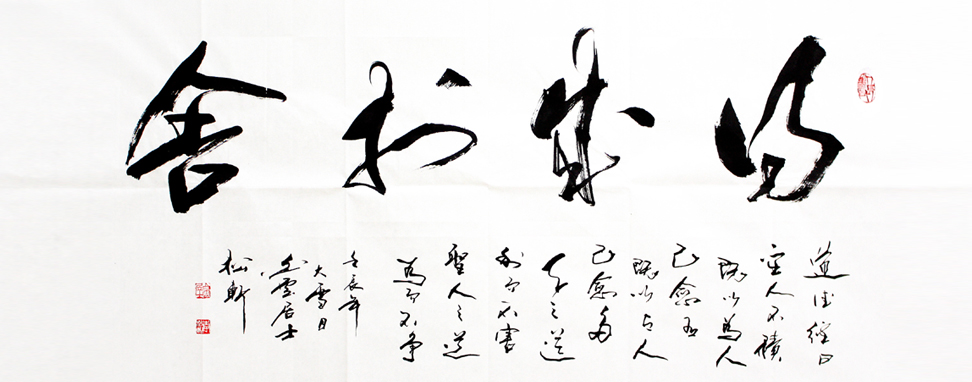 得成於舍
道德經曰
聖人不積
既以為人
己愈有
既以与人
己愈多
天之道
利而不害
聖人之道
為而不争
壬辰年
大雪日
雲居士
松軒